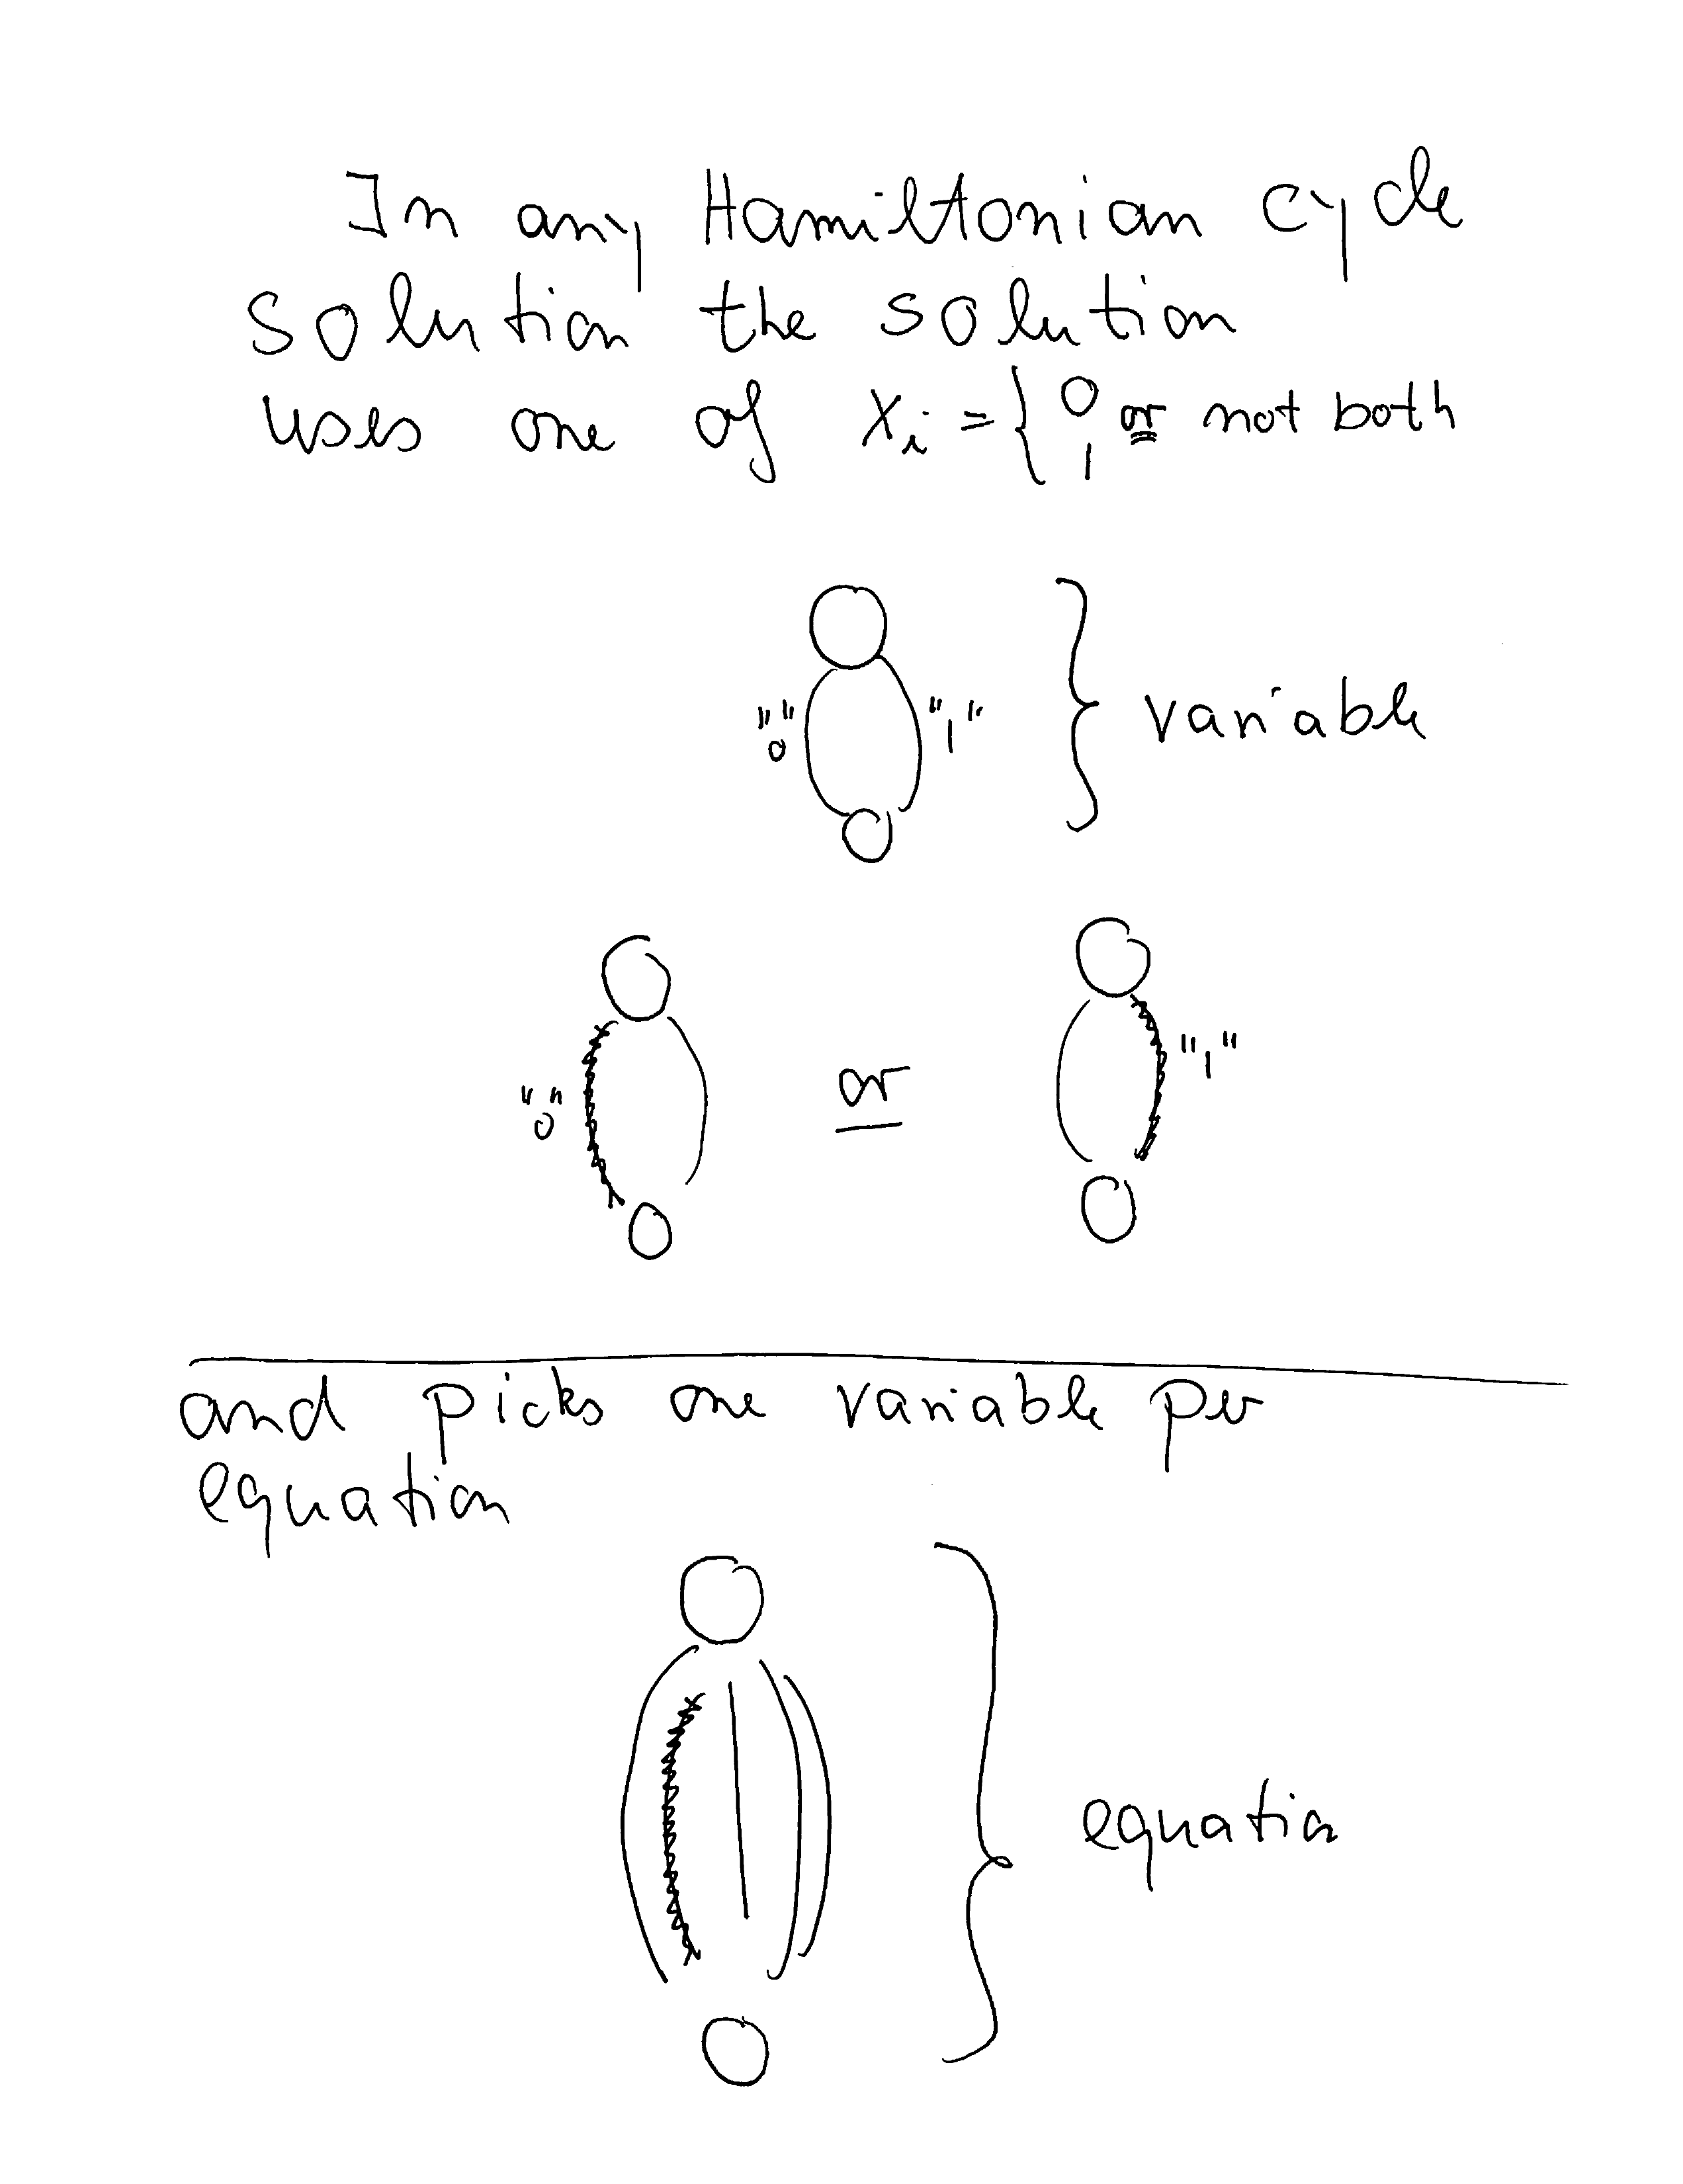 In any Hamiltonian cycle
solution the solution
uses one of Xi = { 0 or not both
1
"0" "1" } variable
"0" or "1"
and picks one variable per
equation
} equation